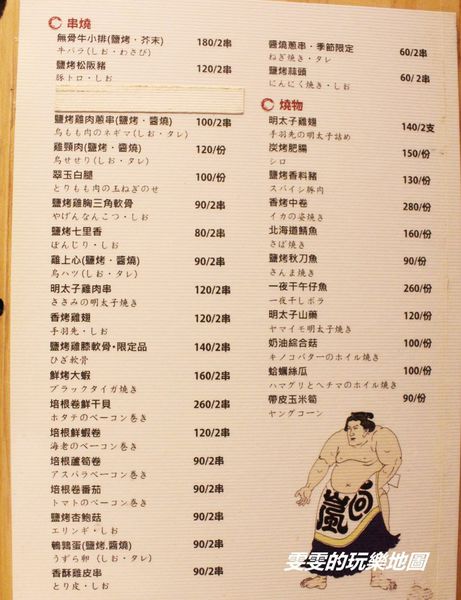 串燒
無骨牛小排(鹽烤・芥末) 180/2串
牛バラ(しお・わさび)
鹽烤松阪豬 120/2串
豚トロ・しお
鹽烤雞肉蔥串(鹽烤・醬燒) 100/2串
鳥もも肉のネギマ(しお・タレ)
雞頸肉(鹽烤・醬燒) 120/份
鳥せせり(しお・タレ)
翠玉白腿 100/份
とりもも肉の玉ねぎのせ
鹽烤雞胸三角軟骨 90/2串
やげんなんこつ・しお
鹽烤七里香 80/2串
ぼんじり・しお
雞上心(鹽烤・醬燒) 90/2串
鳥ハツ(しお・タレ)
明太子雞肉串 120/2串
ささみの明太子焼き
香烤雞翅 120/2串
手羽先・しお
鹽烤雞膝軟骨・限定品 140/2串
ひざ軟骨
鮮烤大蝦 160/2串
ブラックタイガ焼き
培根卷鮮干貝 260/2串
ホタテのベーコン巻き
培根鮮蝦卷 120/2串
海老のベーコン巻き
培根蘆筍卷 90/2串
アスパラベーコン巻き
培根卷番茄 90/2串
トマトのベーコン巻き
鹽烤杏鮑菇 90/2串
エリンギ・しお
鵪鶉蛋(鹽烤.醬燒) 90/2串
うずら卵(しお・タレ)
香酥雞皮串 90/2串
とり皮・しお
醬燒蔥串・季節限定 60/2串
ねぎ焼き・タレ
鹽烤蒜頭 60/2串
にんにく焼き・しお
燒物
明太子雞翅 140/2支
手羽先の明太子詰め
炭烤肥腸 150/份
シロ
鹽烤香料豬 130/份
スパイシ豚肉
香烤中卷 280/份
イカの姿焼き
北海道鯖魚 160/份
さば焼き
鹽烤秋刀魚 90/份
さんま焼き
一夜干午仔魚 260/份
一夜干しボラ
明太子山藥 120/份
ヤマイモ明太子焼き
奶油綜合菇 100/份
キノコバターのホイル焼き
蛤蠣絲瓜 100/份
ハマグリとヘチマのホイル焼き
帶皮玉米筍 90/份
ヤングコーン
嵐
雯雯的玩樂地圖